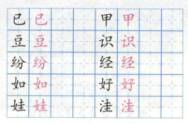 已 已 甲 甲
豆 豆 识 识
纷 纷 经 经
如 如 好 好
娃 娃 洼 洼